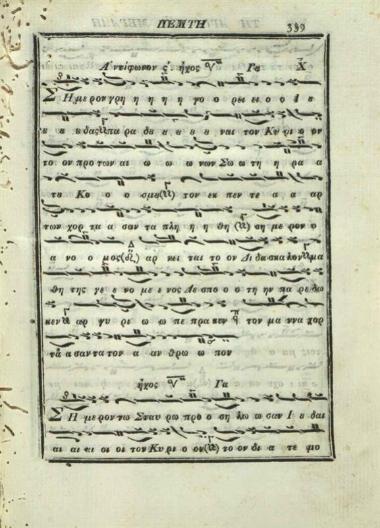 ΠΕΜΠΤΗ 339
Ἀντίφωνον ς΄. ἦχος Γα
Σ Ημερον γρη η η η η γο ο ρει ει ο ο Ι ε
ε ε ε δας παρα δε ε ε ε ε ναι τον Κυ ρι ο ον
το ον προ των αι ω ω ω νων Σω ω τη η ρα α
τε Κο ο ο σμε τον εκ πεν τε α α αρ
των χορ τα α σαν τα πλη η η θη ση με ρον ο
α νο ο μος αρ νει ται το ον Δι δα σκα λον μα
θη της γε ε νο με ε νος Δε σπο ο ο τη ην πα ρε δω
κεν αρ γυ ρι ω ω πε πρα κεν τον μα ννα χορ
τα α σαν τα τον α αν θρω ω πον
ἦχος Γα
Σ Ημερον τω Σταυ ρω προ ο ση λω ω σαν Ι ε δαι
αι αι αι οι οι τον Κυ ρι ο ον το ον δι α τε μο